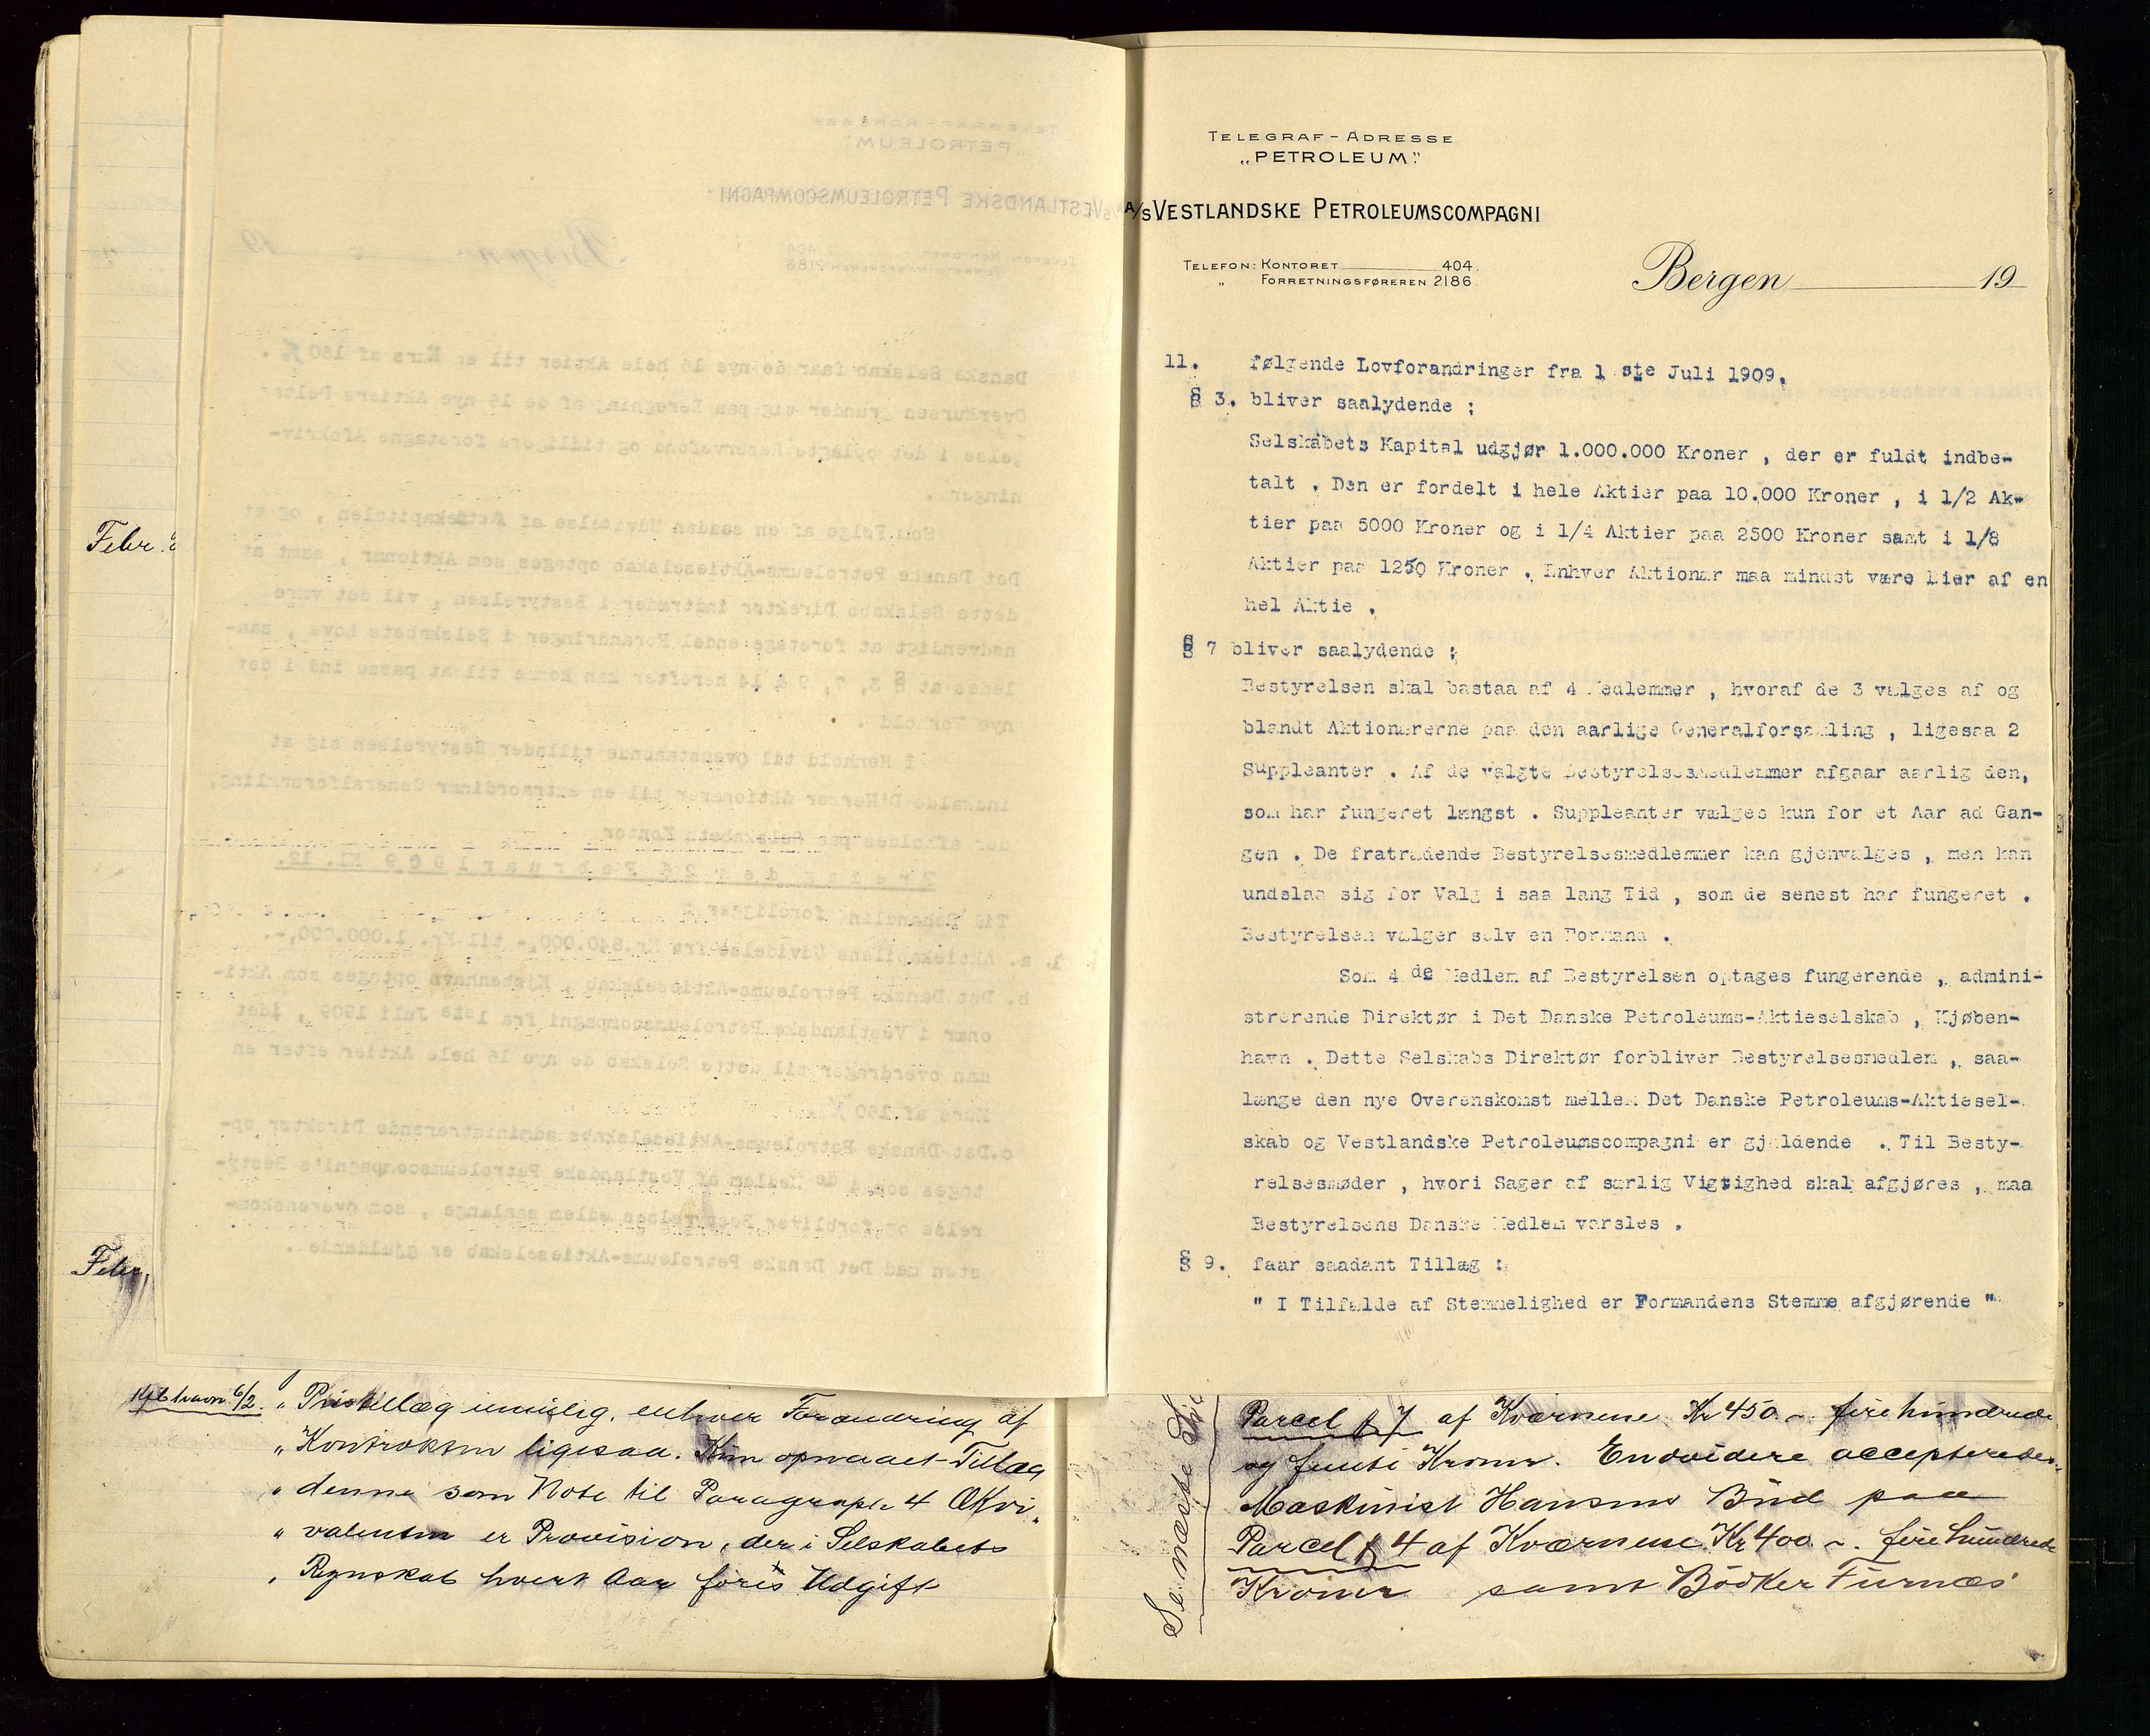 Febr.
Febr.
Kjøbhavn 6/2. „Pristillæg umulig, enhver Forandring af
„Kontrakten ligesaa. Kun opnaaet Tillæg
„denne som Note til Paragraph 4 Ækvi„
„valenten er Provision, der i Selskabets
„Regnskab hvert Aar føres Udgift
TELEGRAF-ADRESSE
„PETROLEUM"
A/S VESTLANDSKE PETROLEUMSCOMPAGNI
TELEFON: KONTORET 404.
„ FORRETNINGSFØREREN 2186.
Bergen 19
11. følgende Lovforandringer fra 1 ste Juli 1909.
§ 3. bliver saalydende ;
Selskabets Kapital udgjør 1.000.000 Kroner , der er fuldt indbe-
talt . Den er fordelt i hele Aktier paa 10.000 Kroner , i 1/2 Ak-
tier paa 5000 Kroner og i 1/4 Aktier paa 2500 Kroner samt i 1/8
Aktier paa 1250 Kroner . Enhver Aktionær maa mindst være Eier af en
hel Aktie .
§ 7 bliver saalydende ;
Bestyrelsen skal bastaa af 4 Medlemmer , hvoraf de 3 vælges af og
blandt Aktionærerne paa den aarlige Generalforsamling , ligesaa 2
Suppleanter . Af de valgte Bestyrelsesmedlemmer afgaar aarlig den,
som har fungeret længst . Suppleanter vælges kun for et Aar ad Gan-
gen . De fratrædende Bestyrelsesmedlemmer kan gjenvælges , men kan
undslaa sig for Valg i saa lang Tid , som de senest har fungeret .
Bestyrelsen vælger selv en Formand .
Som 4 de Medlem af Bestyrelsen optages fungerende , admini-
strerende Direktør i Det Danske Petroleums-Aktieselskab , Kjøben-
havn . Dette Selskabs Direktør forbliver Bestyrelsesmedlem , saa-
længe den nye Overenskomst mellem Det Danske Petroleums-Aktiesel-
skab og Vestlandske Petroleumscompagni er gjældende . Til Besty-
relsesmøder , hvori Sager af særlig Vigtighed skal afgjøres , maa
Bestyrelsens Danske Medlem varsles .
§ 9. faar saadant Tillæg :
" I Tilfælde af Stemmelighed er Formandens Stemme afgjørende "
Se næste
Parcel 7 af Kværnene Kr 450 - fire hundrede
og femti Kroner. Endvidere accepteredes
Maskinist Hansens Bud paa
Parcel 4 af Kværnene Kr 400 -. fire hundrede
Kroner samt Bödker Furnæs